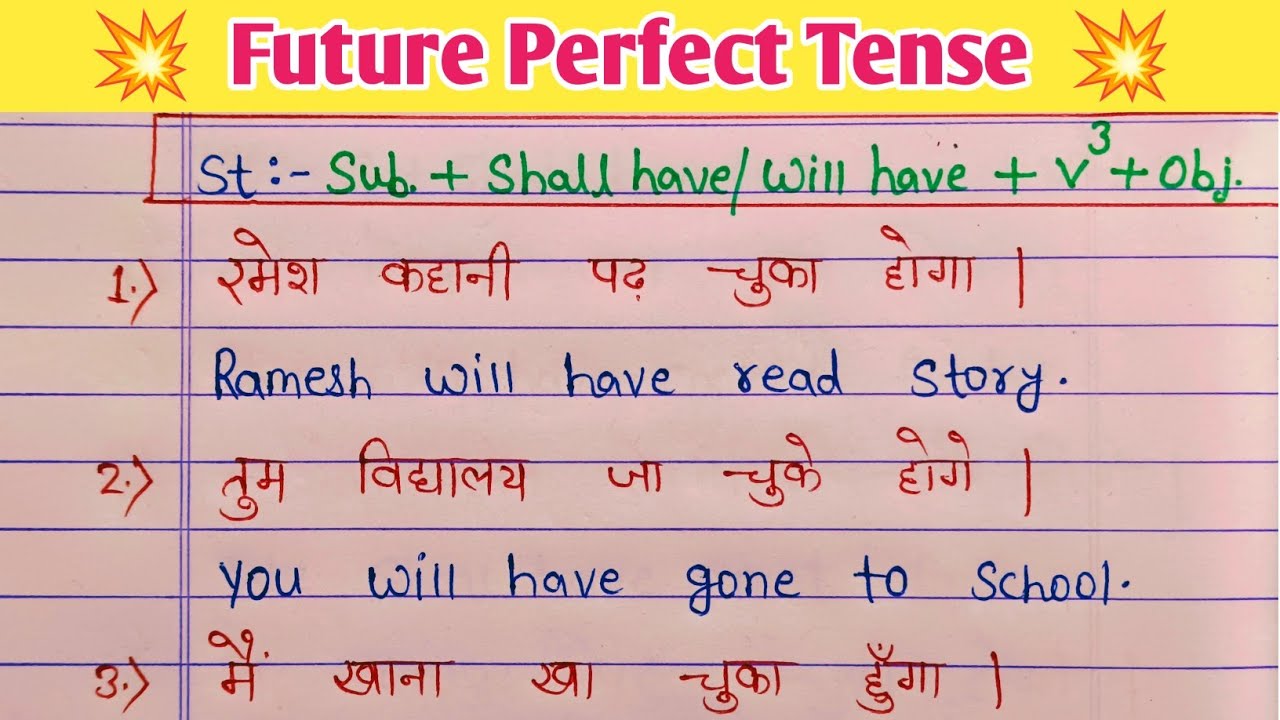 Future Perfect Tense
St :- Sub. + Shall have / Will have + V³ + Obj.
1.) रमेश कहानी पढ़ चुका होगा |
Ramesh will have read story.
2.) तुम विद्यालय जा चुके होगे |
You will have gone to School.
3.) मैं खाना खा चुका हूँगा |